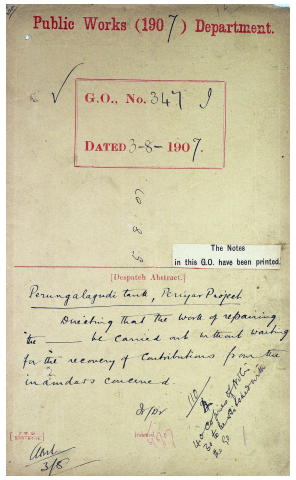 Public Works (1907) Department.
G.O., No. 347 I
DATED 3-8-1907.
The Notes
in this G.O. have been printed.
[Despatch Abstract.]
Perungalagudi tank, Periyar Project
Directing that the work of repairing
the — be carried out without waiting
for the recovery of Contributions from the
inamdars concerned.
40 copies of Notes
to be
3/8